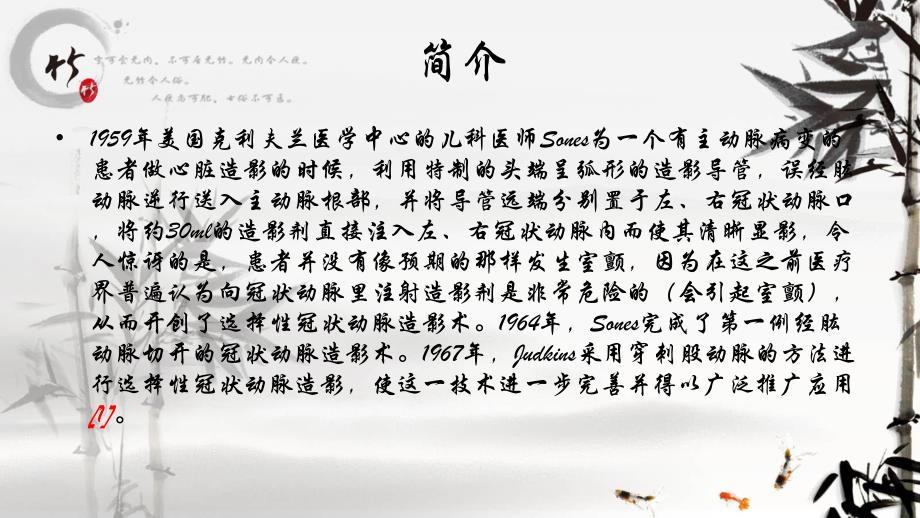 竹
宁可食无肉，不可居无竹。无肉令人瘦，
无竹令人俗。
人瘦尚可肥，士俗不可医。
竹
简介
• 1959年美国克利夫兰医学中心的儿科医师Sones为一个有主动脉病变的
患者做心脏造影的时候，利用特制的头端呈弧形的造影导管，误经肱
动脉逆行送入主动脉根部，并将导管远端分别置于左、右冠状动脉口
，将约30ml的造影剂直接注入左、右冠状动脉内而使其清晰显影，令
人惊讶的是，患者并没有像预期的那样发生室颤，因为在这之前医疗
界普遍认为向冠状动脉里注射造影剂是非常危险的（会引起室颤），
从而开创了选择性冠状动脉造影术。1964年，Sones完成了第一例经肱
动脉切开的冠状动脉造影术。1967年，Judkins采用穿刺股动脉的方法进
行选择性冠状动脉造影，使这一技术进一步完善并得以广泛推广应用
。